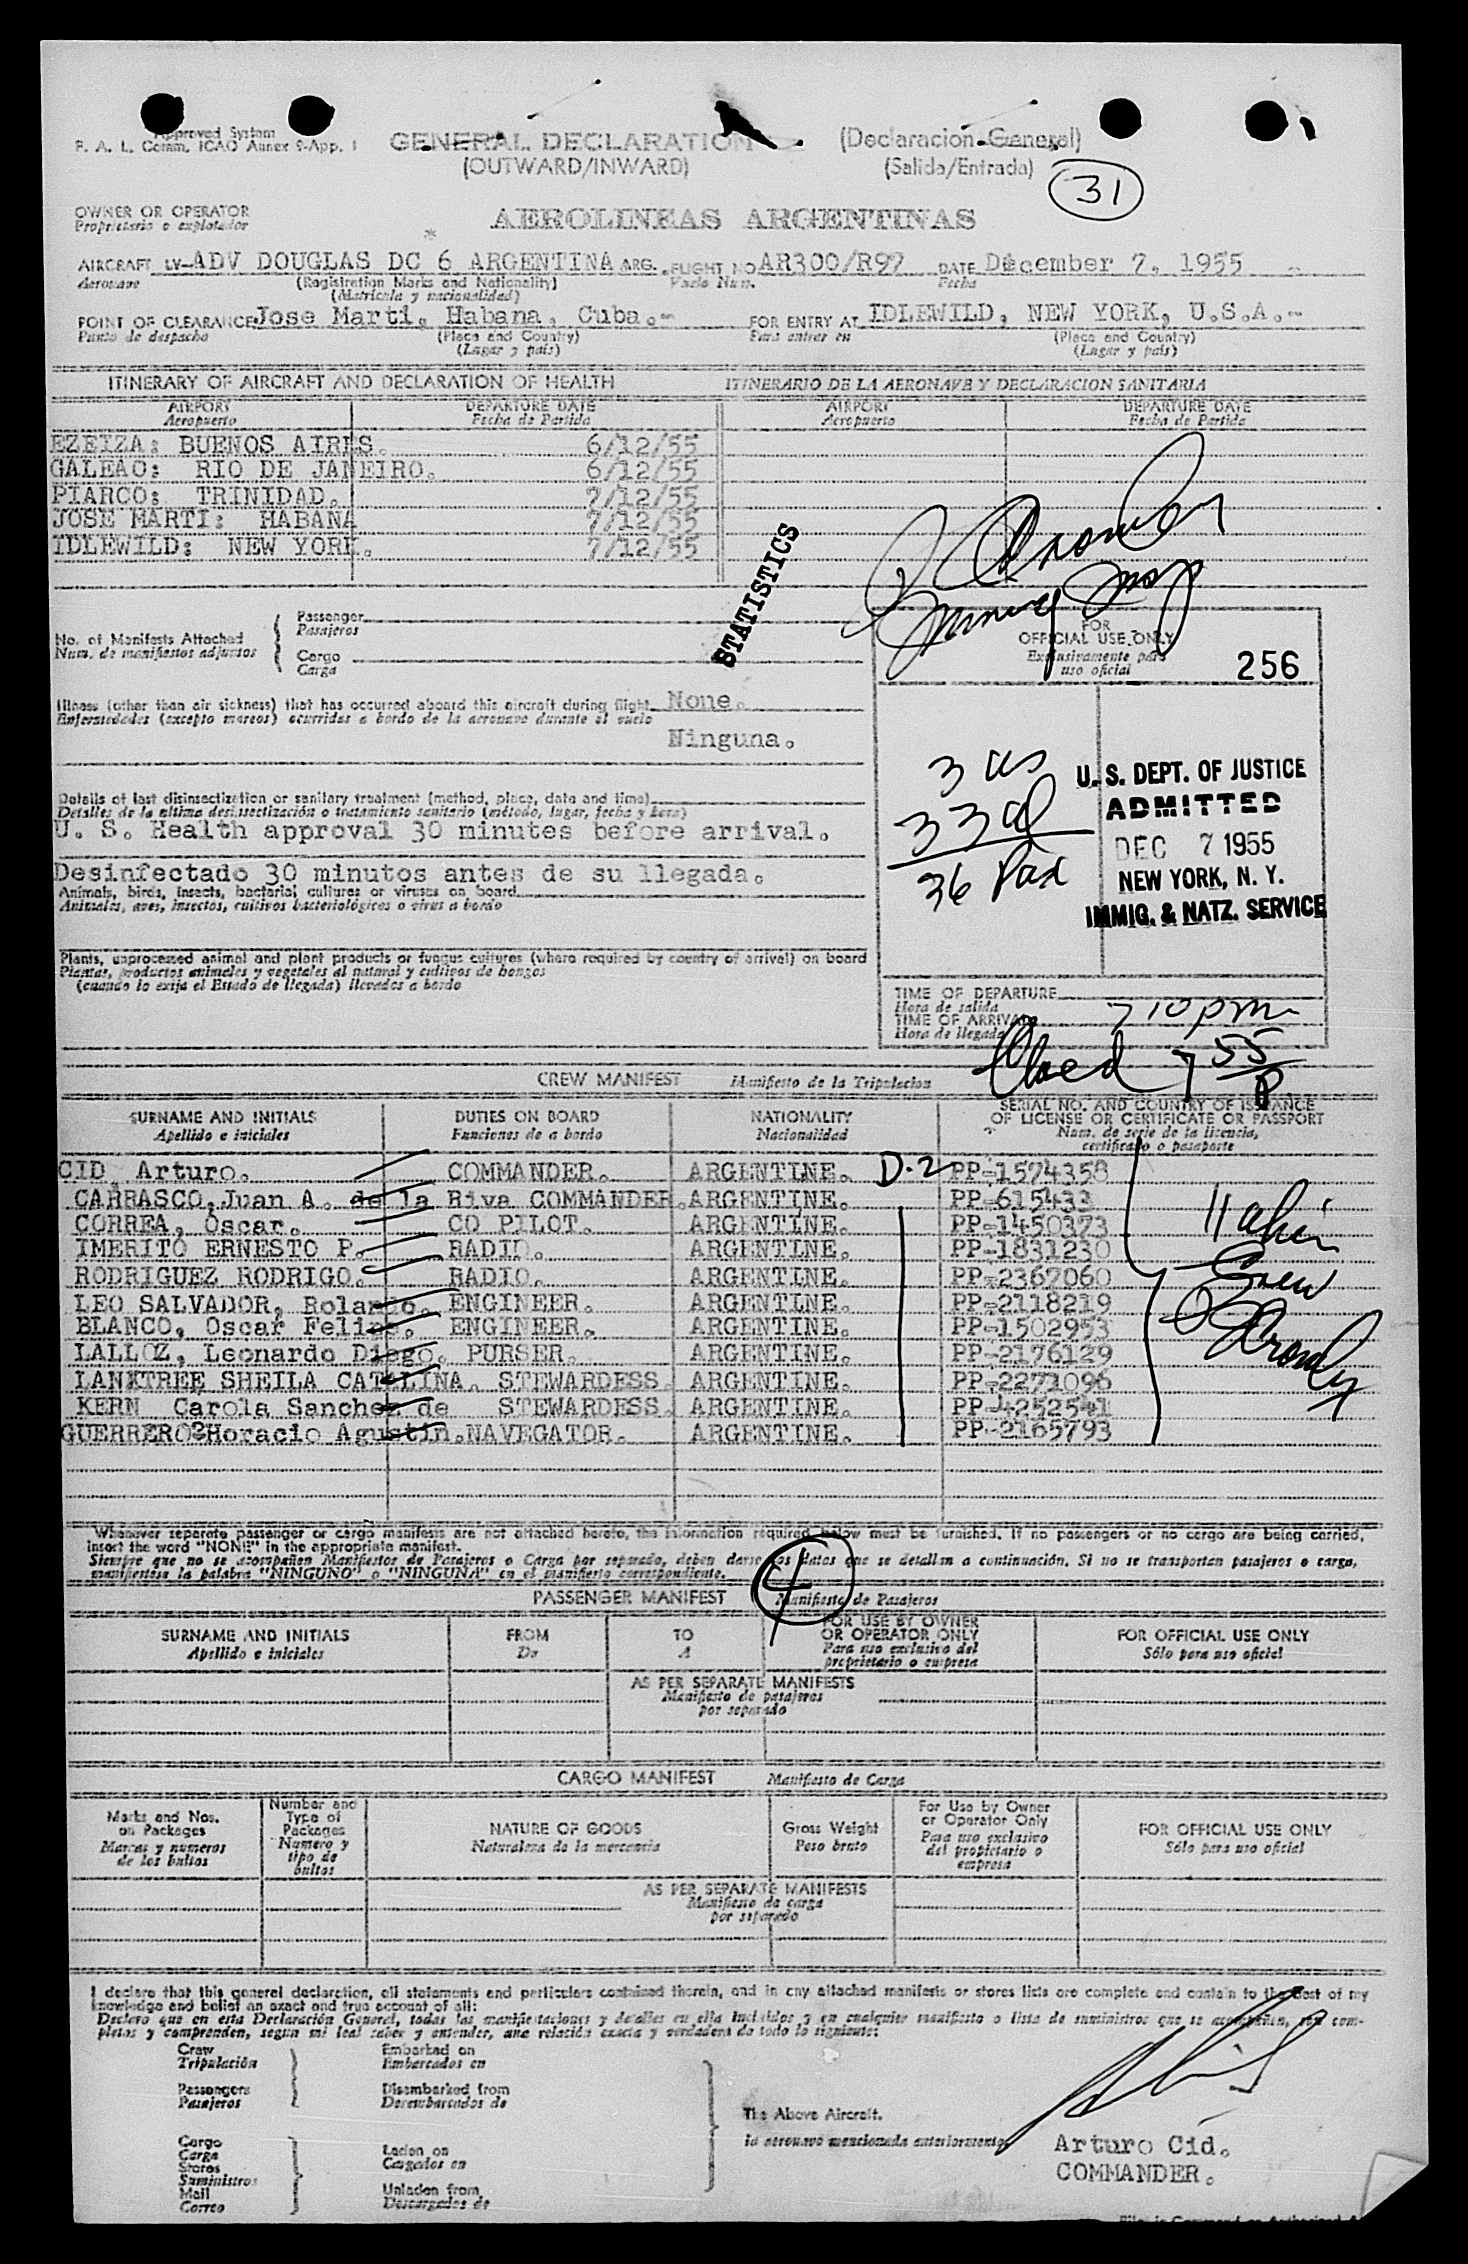 Approved System
F. A. L. Comm. ICAO Annex 9-App. 1
GENERAL DECLARATION
(OUTWARD/INWARD)
(Declaracion General)
(Salida/Entrada)
31
OWNER OR OPERATOR
Propietario o explotador
AEROLINEAS ARGENTINAS
AIRCRAFT LV-ADV DOUGLAS DC 6 ARGENTINA ARG. FLIGHT NO AR300/R97 DATE December 7, 1955
Aeronave (Registration Marks and Nationality) Vuelo Num. Fecha
(Matricula y nacionalidad)
POINT OF CLEARANCE Jose Marti, Habana, Cuba.- FOR ENTRY AT IDLEWILD, NEW YORK, U.S.A.-
Punto de despacho (Place and Country) Para entrar en (Place and Country)
(Lugar y país) (Lugar y país)
ITINERARY OF AIRCRAFT AND DECLARATION OF HEALTH ITINERARIO DE LA AERONAVE Y DECLARACION SANITARIA
AIRPORT DEPARTURE DATE AIRPORT DEPARTURE DATE
Aeropuerto Fecha de Partida Aeropuerto Fecha de Partida
EZEIZA: BUENOS AIRES. 6/12/55
GALEAO: RIO DE JANEIRO. 6/12/55
PIARCO: TRINIDAD. 7/12/55
JOSE MARTI: HABANA 7/12/55
IDLEWILD: NEW YORK. 7/12/55
STATISTICS
No. of Manifests Attached
Num. de manifiestos adjuntos
Passenger
Pasajeros
Cargo
Carga
FOR
OFFICIAL USE ONLY
Exclusivamente para
uso oficial
256
Illness (other than air sickness) that has occurred aboard this aircraft during flight None.
Enfermedades (excepto mareos) ocurridas a bordo de la aeronave durante el vuelo
Ninguna.
3 us
33 al
36 Pax
U. S. DEPT. OF JUSTICE
ADMITTED
DEC 7 1955
NEW YORK, N. Y.
IMMIG. & NATZ. SERVICE
Details of last disinsectization or sanitary treatment (method, place, date and time)
Detalles de la ultima desinsectización o tratamiento sanitario (método, lugar, fecha y hora)
U. S. Health approval 30 minutes before arrival.
Desinfectado 30 minutos antes de su llegada.
Animals, birds, insects, bacterial cultures or viruses on board
Animales, aves, insectos, cultivos bacteriológicos o virus a bordo
Plants, unprocessed animal and plant products or fungus cultures (where required by country of arrival) on board
Plantas, productos animales y vegetales al natural y cultivos de hongos
(cuando lo exija el Estado de llegada) llevados a bordo
TIME OF DEPARTURE
Hora de salida
TIME OF ARRIVAL
Hora de llegada
7 10 pm
Closed 7 55 P
CREW MANIFEST Manifiesto de la Tripulacion
SURNAME AND INITIALS DUTIES ON BOARD NATIONALITY SERIAL NO. AND COUNTRY OF ISSUANCE
OF LICENSE OR CERTIFICATE OR PASSPORT
Apellido e iniciales Funciones de a bordo Nacionalidad Num. de serie de la licencia,
certificado o pasaporte
CID Arturo. COMMANDER. ARGENTINE. D-2 PP-1574358
CARRASCO, Juan A. de la Riva COMMANDER. ARGENTINE. PP-615433
CORREA, Oscar. CO PILOT. ARGENTINE. PP-1450373
IMERITO ERNESTO P. RADIO. ARGENTINE. PP-1831230
RODRIGUEZ RODRIGO. RADIO. ARGENTINE. PP-2367060
LEO SALVADOR, Rolando. ENGINEER. ARGENTINE. PP-2118219
BLANCO, Oscar Felipe. ENGINEER. ARGENTINE. PP-1502953
LALLOZ, Leonardo Diego. PURSER. ARGENTINE. PP-2176129
LANKTREE SHEILA CATALINA. STEWARDESS. ARGENTINE. PP-2271096
KERN Carola Sanchez de STEWARDESS. ARGENTINE. PP-4252541
GUERRERO Horacio Agustin. NAVEGATOR. ARGENTINE. PP-2165793
11 alien
Crew
Whenever separate passenger or cargo manifests are not attached hereto, the information required below must be furnished. If no passengers or no cargo are being carried,
insert the word "NONE" in the appropriate manifest.
Siempre que no se acompañen Manifiestos de Pasajeros o Carga por separado, deben darse los datos que se detallan a continuación. Si no se transportan pasajeros o carga,
manifiestese la palabra "NINGUNO" o "NINGUNA" en el manifiesto correspondiente.
PASSENGER MANIFEST Manifiesto de Pasajeros
SURNAME AND INITIALS FROM TO FOR USE BY OWNER
OR OPERATOR ONLY FOR OFFICIAL USE ONLY
Apellido e iniciales De A Para uso exclusivo del
propietario o empresa Sólo para uso oficial
AS PER SEPARATE MANIFESTS
Manifiesto de pasajeros
por separado
CARGO MANIFEST Manifiesto de Carga
Marks and Nos.
on Packages
Marcas y numeros
de los bultos
Number and
Type of
Packages
Numero y
tipo de
bultos
NATURE OF GOODS
Naturaleza de la mercancia
Gross Weight
Peso bruto
For Use by Owner
or Operator Only
Para uso exclusivo
del propietario o
empresa
FOR OFFICIAL USE ONLY
Sólo para uso oficial
AS PER SEPARATE MANIFESTS
Manifiesto de carga
por separado
I declare that this general declaration, all statements and particulars contained therein, and in any attached manifests or stores lists are complete and contain to the best of my
knowledge and belief an exact and true account of all:
Declaro que en esta Declaración General, todas las manifestaciones y detalles en ella incluidos y en cualquier manifiesto o lista de suministros que se acompañen, son com-
pletos y comprenden, segun mi leal saber y entender, una relación exacta y verdadera de todo lo siguiente:
Crew
Tripulación
Passengers
Pasajeros
Embarked on
Embarcados en
Disembarked from
Desembarcados de
Cargo
Carga
Stores
Suministros
Mail
Correo
Laden on
Cargados en
Unladen from
Descargados de
The Above Aircraft.
la aeronave mencionada anteriormente
Arturo Cid.
COMMANDER.